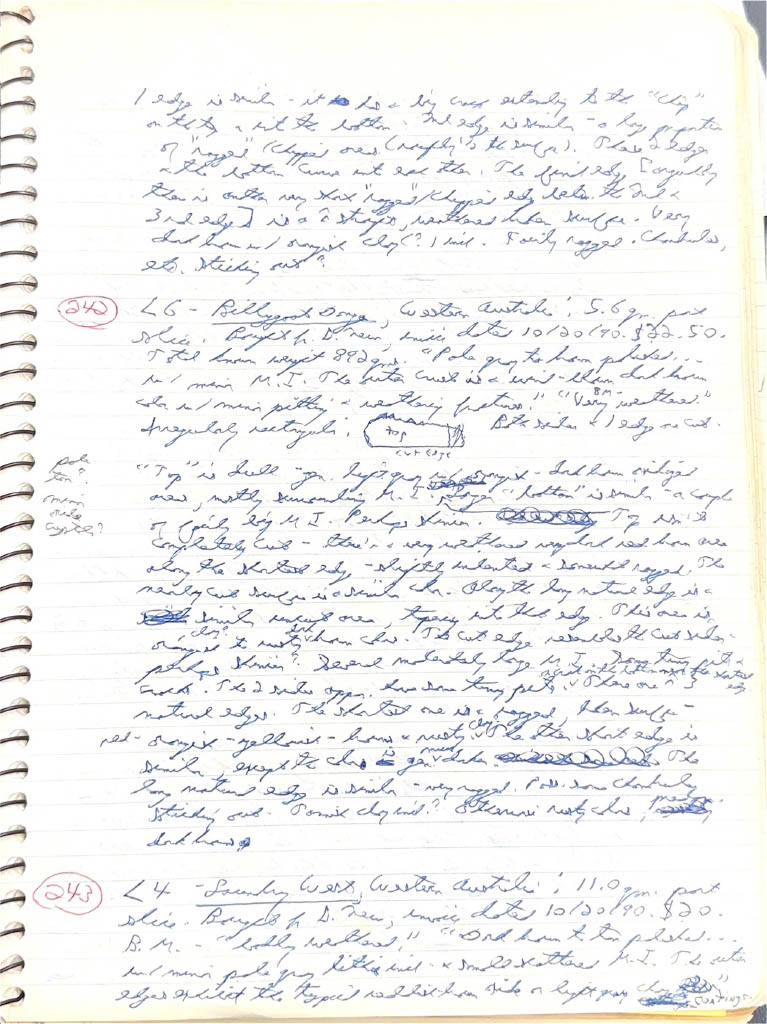 1 edge is similar - it has a big crack extending to the "chip"
on the top & into the bottom. 2nd edge is similar - a long proportion
of "ragged"/chipped area (roughly to the surface). These 2 edges
& the bottom curve into each other. The final edge [arguably
there is another very short "ragged"/chipped edge between the 2nd &
3rd edge] is a straight, weathered broken surface. Very
dark brown w/ orangish clay(?) incl. Fairly ragged. Chondrules,
etc. sticking out?
242 L6 - Billygoat Donga, Western Australia; 5.6 gm. part
slice. Bought fr. D. New, invoice dated 10/20/90. $22.50.
Total known weight 892 gms. "Pale gray to brown polished...
w/ minor M.I. The outer crust is a wind-blown dark brown
color w/ minor pitting & weathering fractures." "Very weathered." BM-
Irregularly rectangular: Both sides & 1 edge are cut.
top
cut edge
"Top" is dull - gen. light gray w/ orangish - dark brown oxidized
areas, mostly surrounding M.I. "bottom" is similar - a couple
pale tan? minor oxide crystals?
of fairly big M.I. Perhaps shinier. Top isn't
completely cut - there's a very weathered very dark red brown area
along the shortest edge - slightly indented & somewhat ragged. The
nearby cut surface is a similar color. Along the long natural edge is a
similar uncut area, tapering into that edge. This area is
orangish to rusty dark brown color. clay? The cut edge resembles the cut sides -
perhaps shinier? Several moderately large M.I. Some tiny pits &
cracks. The 2 sides appar. have some tiny pits. There are 3
natural edges. The shortest one is a ragged, broken surface -
red-orangish - yellowish - brown & rusty clay. The other short edge is
similar, except the color is gen. much darker. The
long natural edge is similar - very ragged. Poss. some chondrules
sticking out. Tannish clay incl.? Otherwise rusty color,
dark brown.
243 L4 - Laundry West, Western Australia; 11.0 gm. part
slice. Bought fr. D. New, invoice dated 10/20/90. $20.
B.M. - "badly weathered," "Dark brown to tan polished...
w/ minor pale gray lithic incl. & small scattered M.I. The outer
edges exhibit the typical reddish brown oxide or light gray clay coatings."